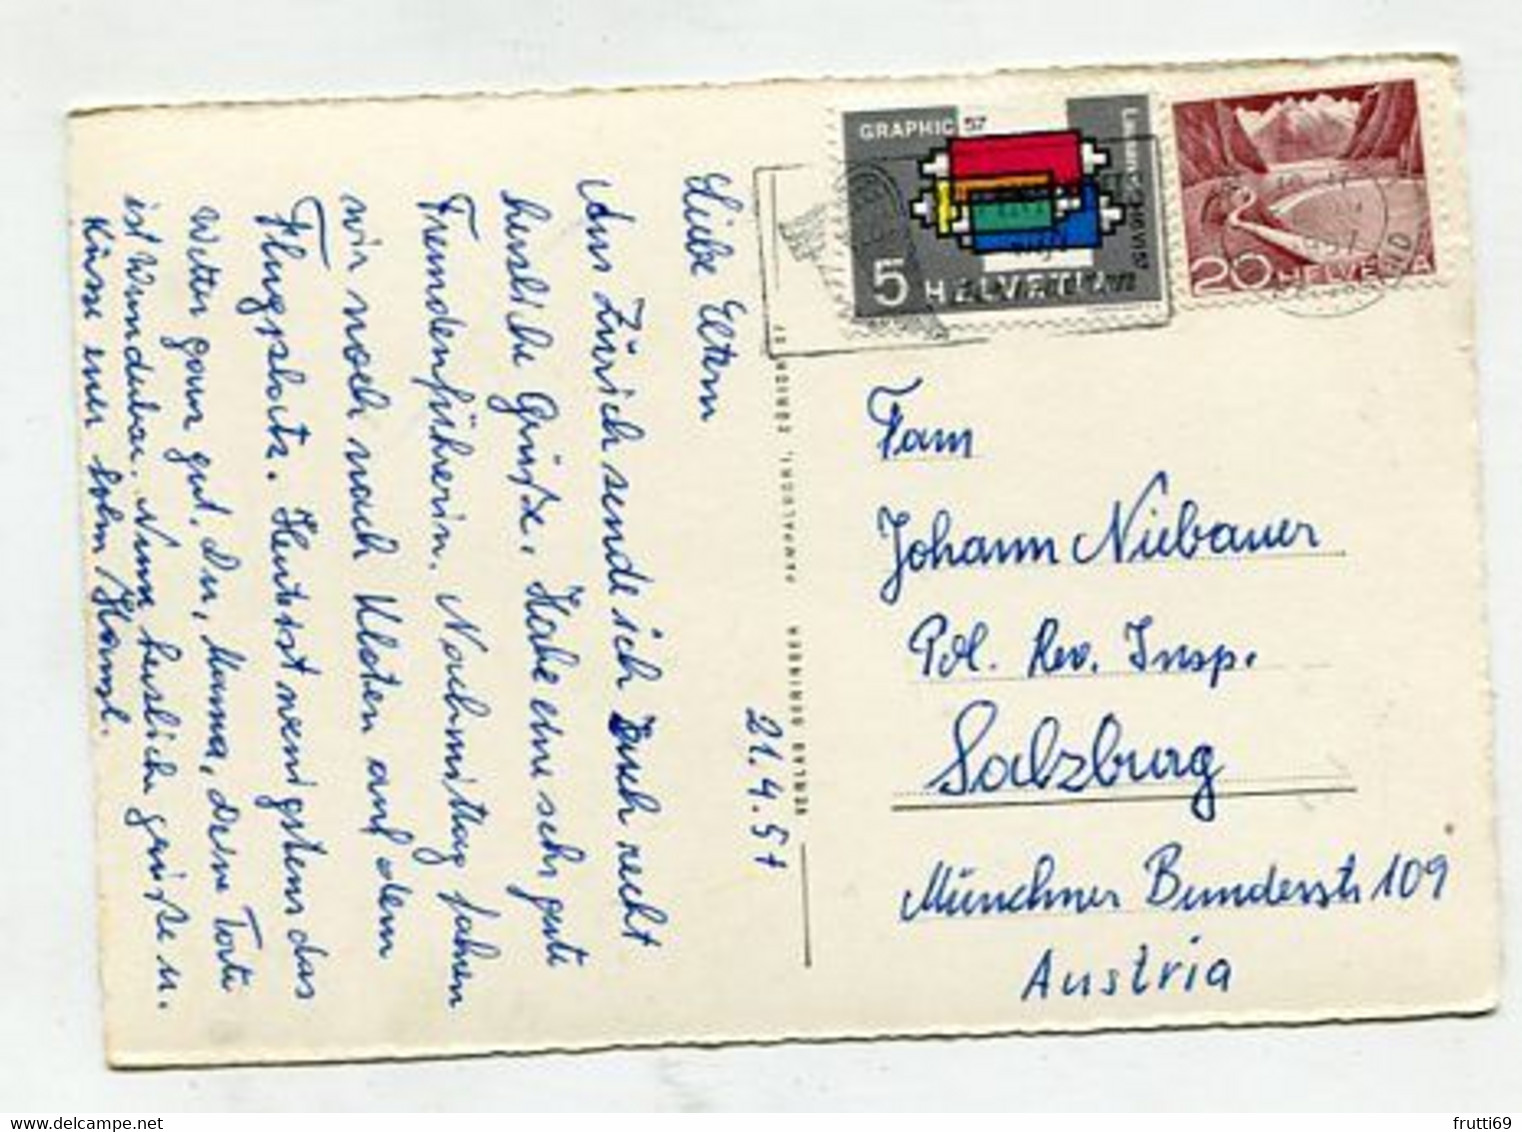 Liebe Eltern
Aus Zürich sende ich Euch recht
herzliche Grüße. Habe eine sehr gute
Fremdenführerin. Nachmittag fahren
wir noch nach Kloten auf dem
Flugplatz. Heut ist wenigstens das
Wetter ganz gut. Du, Mama, deine Torte
ist Wunderbar. Nun herzliche Grüße u.
Küsse euer Sohn Hansl.
21.4.57
VERLAG BERINGER PAMPALUCHI, ZÜRICH 2
GRAPHIC 57
Lausanne
5 HELVETIA
20 HELVETIA
Fam
Johann Niebauer
Pol. Rev. Insp.
Salzburg
Münchner Bundesstr 109
Austria
frutti69